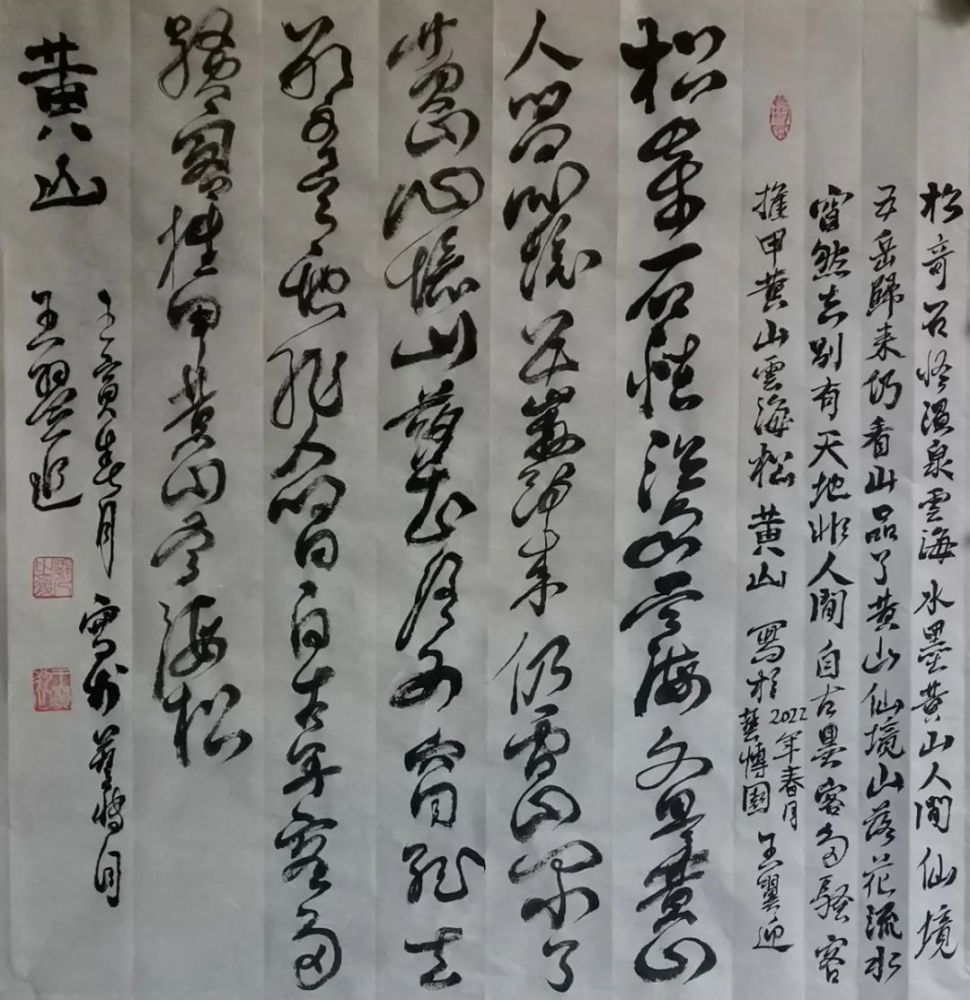 松奇石怪溫泉雲海水墨黃山人間仙境
五岳歸來仍看山品了黃山仙境山落花流水
窅然去別有天地非人間自古墨客多騷客
甲黃山雲海松 黃山 寫於
2022年春月
藝博園 王翼迎
松奇石怪溫泉雲海水墨黃山
人間仙境五岳歸來仍看山品了
黃山仙境山落花流水窅然去
別有天地非人間自古墨客多
騷客甲黃山雲海松
黃山
壬寅春月 寫於藝博園
王翼迎